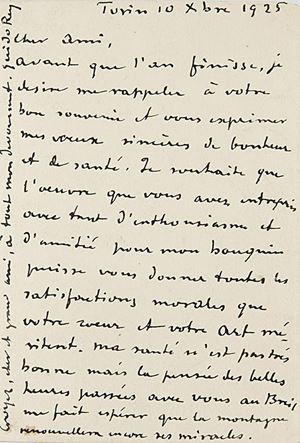 Turin 10 Xbre 1925
cher ami,
avant que l'an finisse, je
desire me rappeler à votre
bon souvenir et vous exprimer
mes voeux sincères de bonheur
et de santé. Je souhaite que
l'oeuvre que vous avez entreprise
avec tant d'enthousiasme et
d'amitié pour mon bouquin
puisse vous donner toutes les
satisfactions morales que
votre coeur et votre art mé-
ritent. Ma santé n'est pas très
bonne mais la pensée des belles
heures passées avec vous au Breuil
me fait espérer que la montagne
renouvellera encore ses miracles.
Croyez, cher et grand ami, à tout mon dévouement. Guido Rey